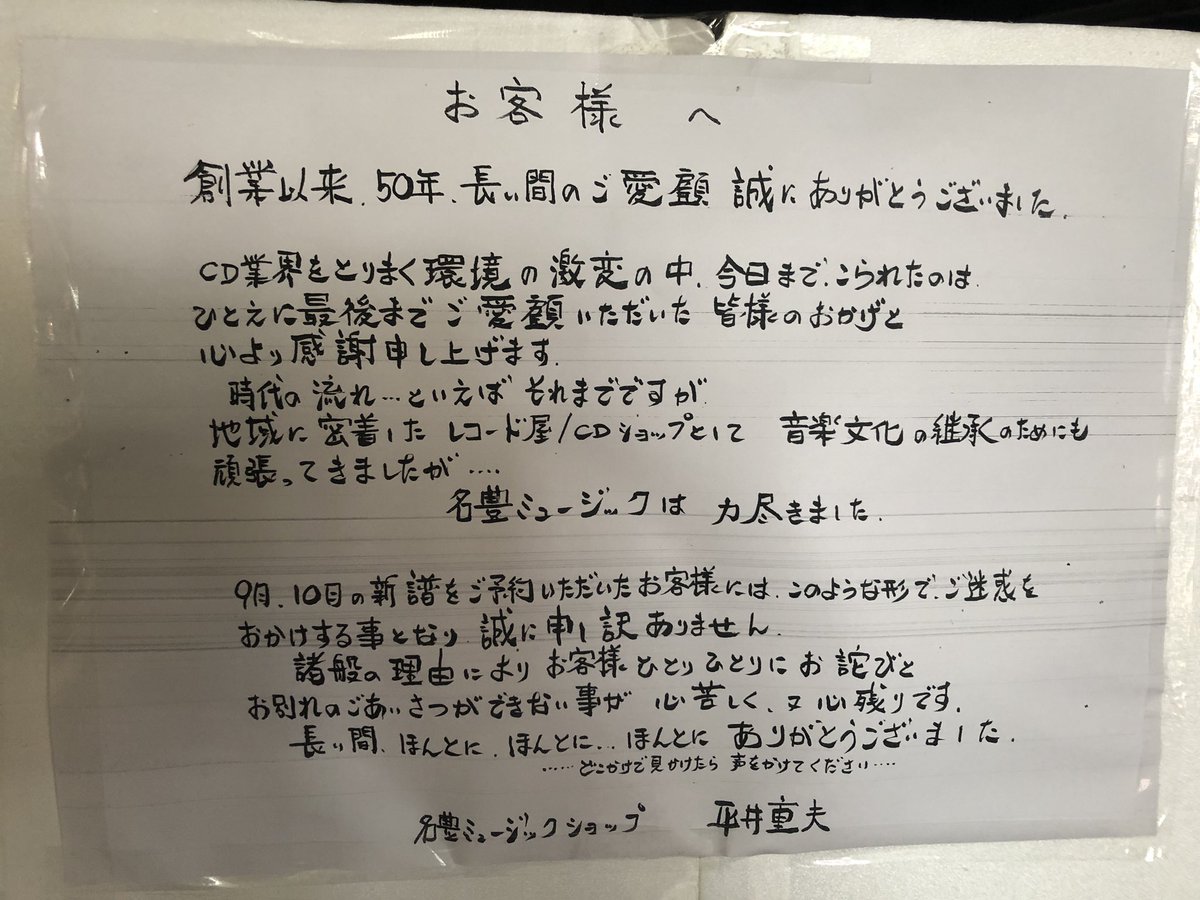 お客様 へ
創業以来、50年、長い間のご愛顧 誠にありがとうございました。
CD業界をとりまく環境の激変の中、今日まで、こられたのは
ひとえに最後までご愛顧いただいた 皆様のおかげと
心より感謝申し上げます。
時代の流れ…といえば それまでですが
地域に密着した レコード屋/CDショップとして 音楽文化の継承のためにも
頑張ってきましたが‥‥
名豊ミュージックは 力尽きました。
9月、10日の新譜をご予約いただいたお客様には、このような形で、ご迷惑を
おかけする事となり 誠に申し訳ありません。
諸般の理由により お客様ひとりひとりに お詫びと
お別れのごあいさつができない事が 心苦しく、又心残りです。
長い間、ほんとに、ほんとに‥ほんとに ありがとうございました。
‥‥‥どこかで見かけたら 声をかけてください‥‥
名豊ミュージックショップ 平井重夫